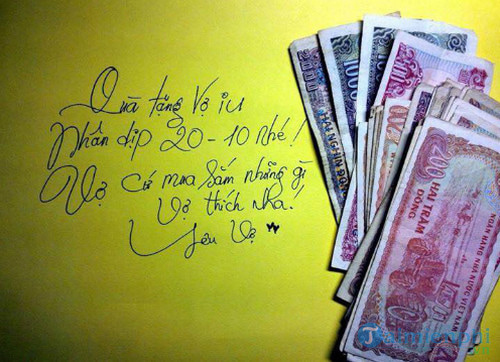 Quà tặng Vợ iu
Nhân dịp 20-10 nhé!
Vợ cứ mua sắm những gì
Vợ thích nha!
Yêu Vợ
2000
HAI NGHÌN ĐỒNG
1000
200
HAI TRĂM
ĐỒNG
NGÂN HÀNG NHÀ NƯỚC VIỆT NAM
200